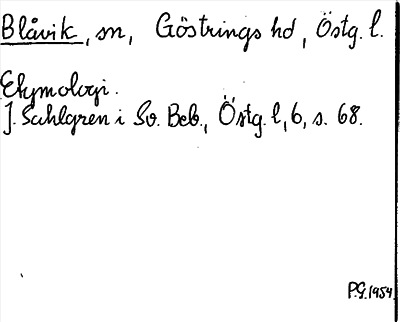 Blåvik, sn, Göstrings hd, Östg. l.
Etymologi.
J. Sahlgren i Sv. Beb., Östg. l, 6, s. 68.
P.G. 1954